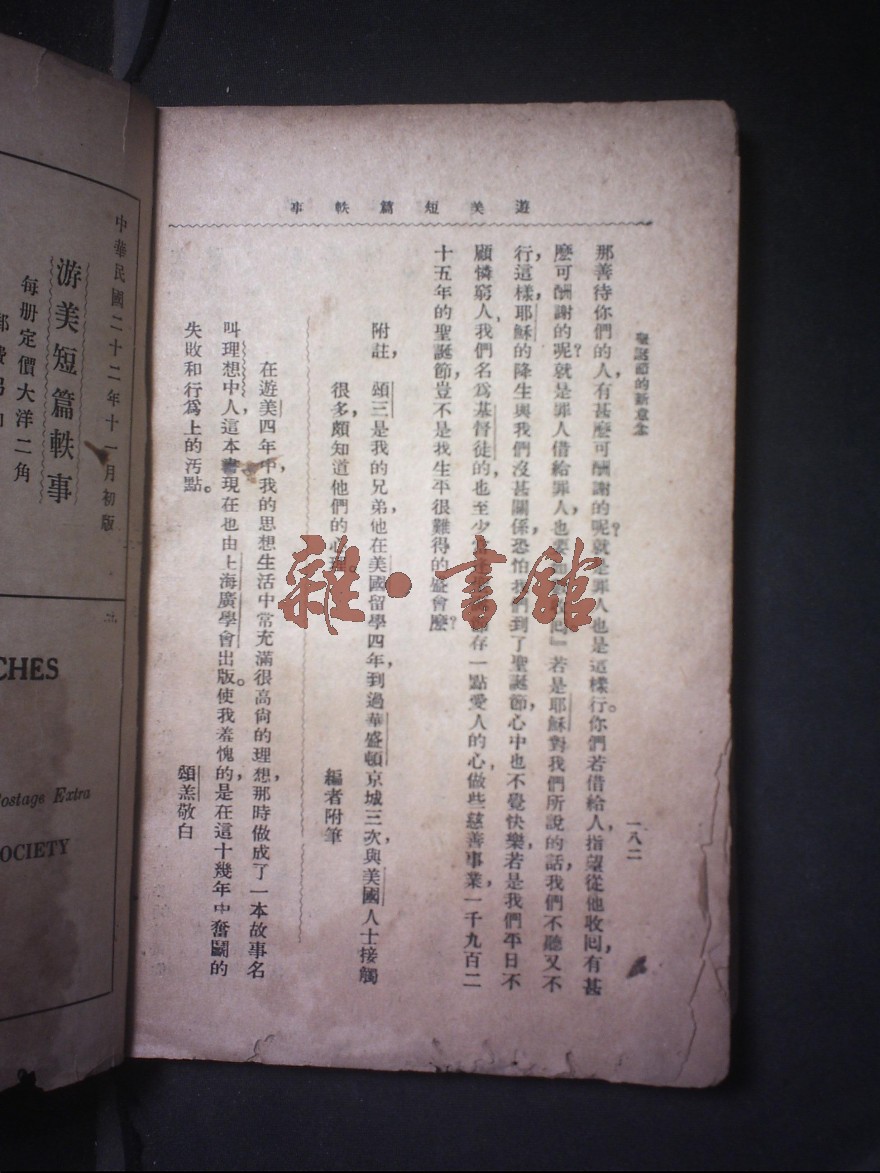 遊美短篇軼事
聖誕節的新意念
一八二
那善待你們的人,有甚麼可酬謝的呢?就是罪人也是這樣行。你們若借給人,指望從他收回,有甚
麼可酬謝的呢?就是罪人借給罪人,也要如數收回』若是耶穌對我們所說的話,我們不聽又不
行,這樣,耶穌的降生與我們沒甚關係,恐怕我們到了聖誕節,心中也不覺快樂,若是我們平日不
顧憐窮人,我們名爲基督徒的,也至少存一點愛人的心,做些慈善事業,一千九百二
十五年的聖誕節,豈不是我生平很難得的盛會麼?
附註,頌三是我的兄弟,他在美國留學四年,到過華盛頓京城三次,與美國人士接觸
很多,頗知道他們的心理。
編者附筆
在遊美四年中,我的思想生活中常充滿很高尙的理想,那時做成了一本故事名
叫理想中人,這本書現在也由上海廣學會出版。使我羞愧的,是在這十幾年中奮鬭的
失敗和行爲上的汚點。
頌羔敬白
雜·書館
中華民國二十二年十一月初版
游美短篇軼事
每册定價大洋二角
郵費
CHES
Postage Extra
OCIETY